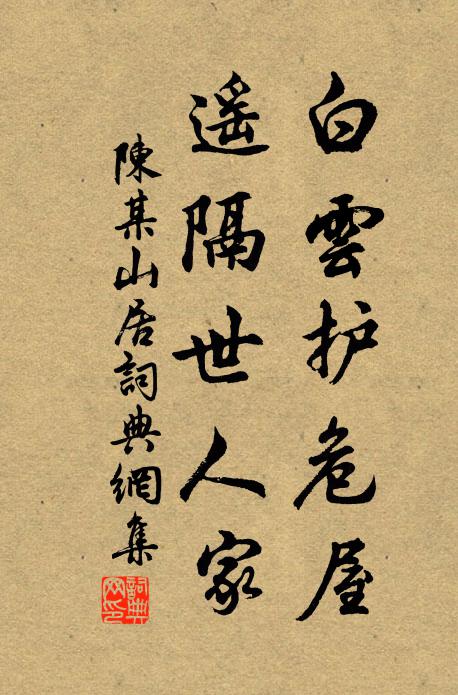 白雲护危屋
遥隔世人家
陳某山居詞典網集
詞典網印